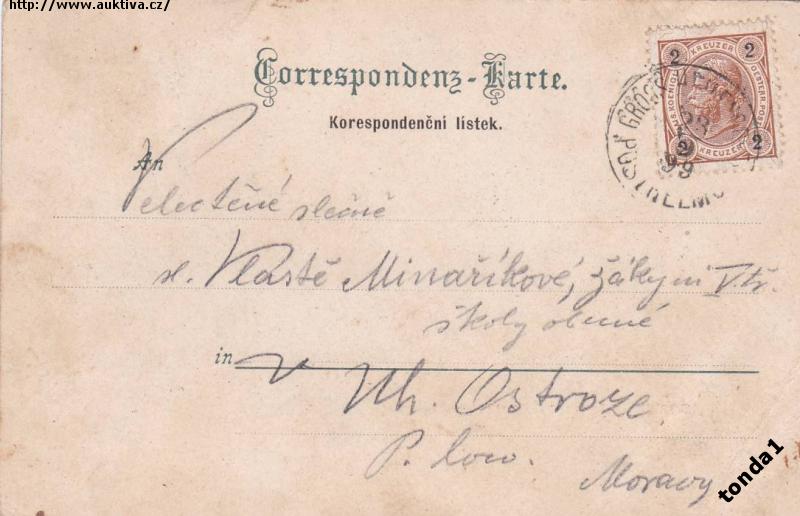 http://www.auktiva.cz/
Correspondenz-Karte.
Korespondenční lístek.
An
Velectěné slečně
sl. Vlastě Minaříkové, žákyni V. tř.
školy obecné
in v Uh. Ostroze.
P. loco. Moravy
2 KREUZER 2
2 KREUZER 2
99
tonda1